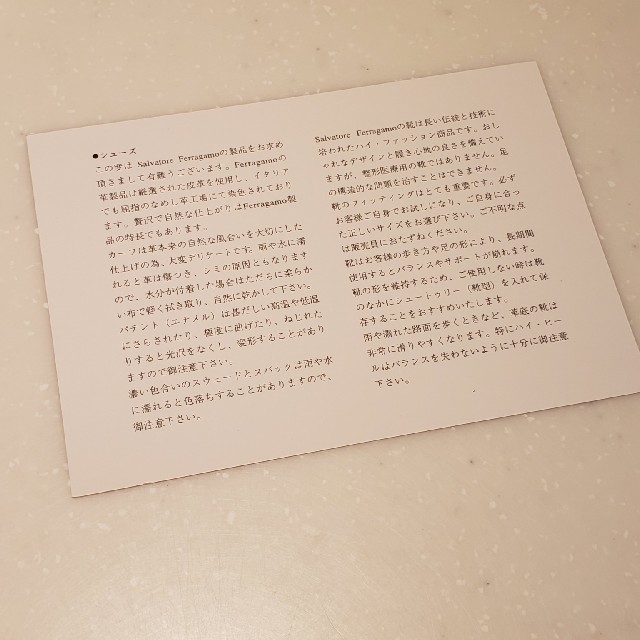 ●シューズ
この度は Salvatore Ferragamoの製品をお求め
頂きまして有難うございます。Ferragamoの
革製品は厳選された皮革を使用し、イタリア
でも屈指のなめし革工場にて染色されており
ます。贅沢で自然な仕上がりはFerragamo製
品の特長でもあります。
カーフは革本来の自然な風合いを大切にした
仕上げの為、大変デリケートです。雨や水に濡
れると革は傷つき、シミの原因ともなります
ので、水分が付着した場合はただちに柔らか
い布で軽く拭き取り、自然に乾かして下さい。
パテント（エナメル）は甚だしい高温や低温
にさらされたり、極度に曲げたり、ねじれた
りすると光沢をなくし、変形することがあり
ますので御注意下さい。
濃い色合いのスウェードとヌバックは雨や水
に濡れると色落ちすることがありますので、
御注意下さい。
Salvatore Ferragamoの靴は長い伝統と技術に
培われたハイ・ファッション商品です。おし
ゃれなデザインと履き心地の良さを備えてい
ますが、整形医療用の靴ではありません。足
の構造的な問題を治すことはできません。
靴のフィッティングはとても重要です。必ず
お客様ご自身でお試しになり、ご自身に合っ
た正しいサイズをお選び下さい。ご不明な点
は販売員におたずねください。
靴はお客様の歩き方や足の形により、長期間
使用するとバランスやサポートが崩れます。
靴の形を維持するため、ご使用しない時は靴
のなかにシュートゥリー（靴型）を入れて保
存することをおすすめいたします。
雨や濡れた路面を歩くときなど、革底の靴は
非常に滑りやすくなります。特にハイ・ヒー
ルはバランスを失わないように十分に御注意
下さい。